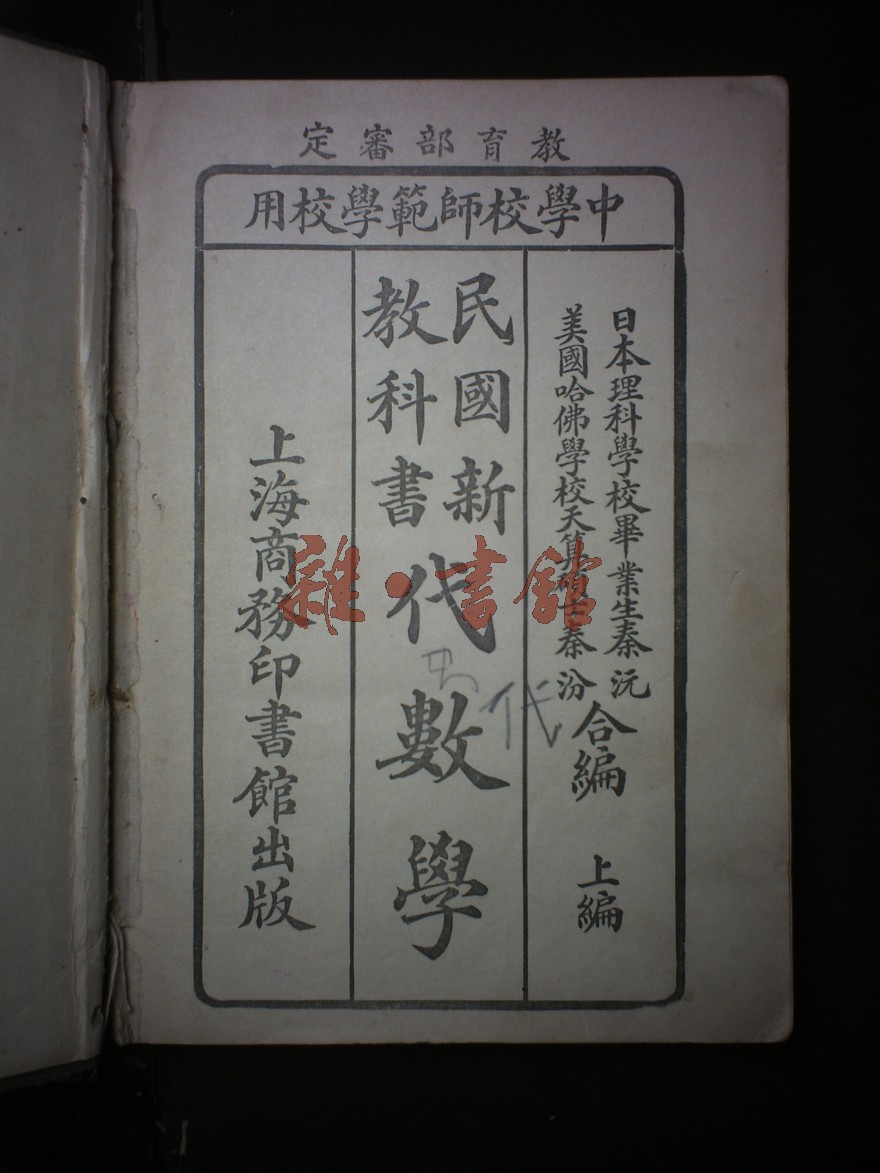 教育部審定
中學校師範學校用
日本理科學校畢業生秦沅
美國哈佛學校天算碩士秦汾
合編
上編
民國新
教科書
代數學
上海商務印書館出版
代
雜·書館